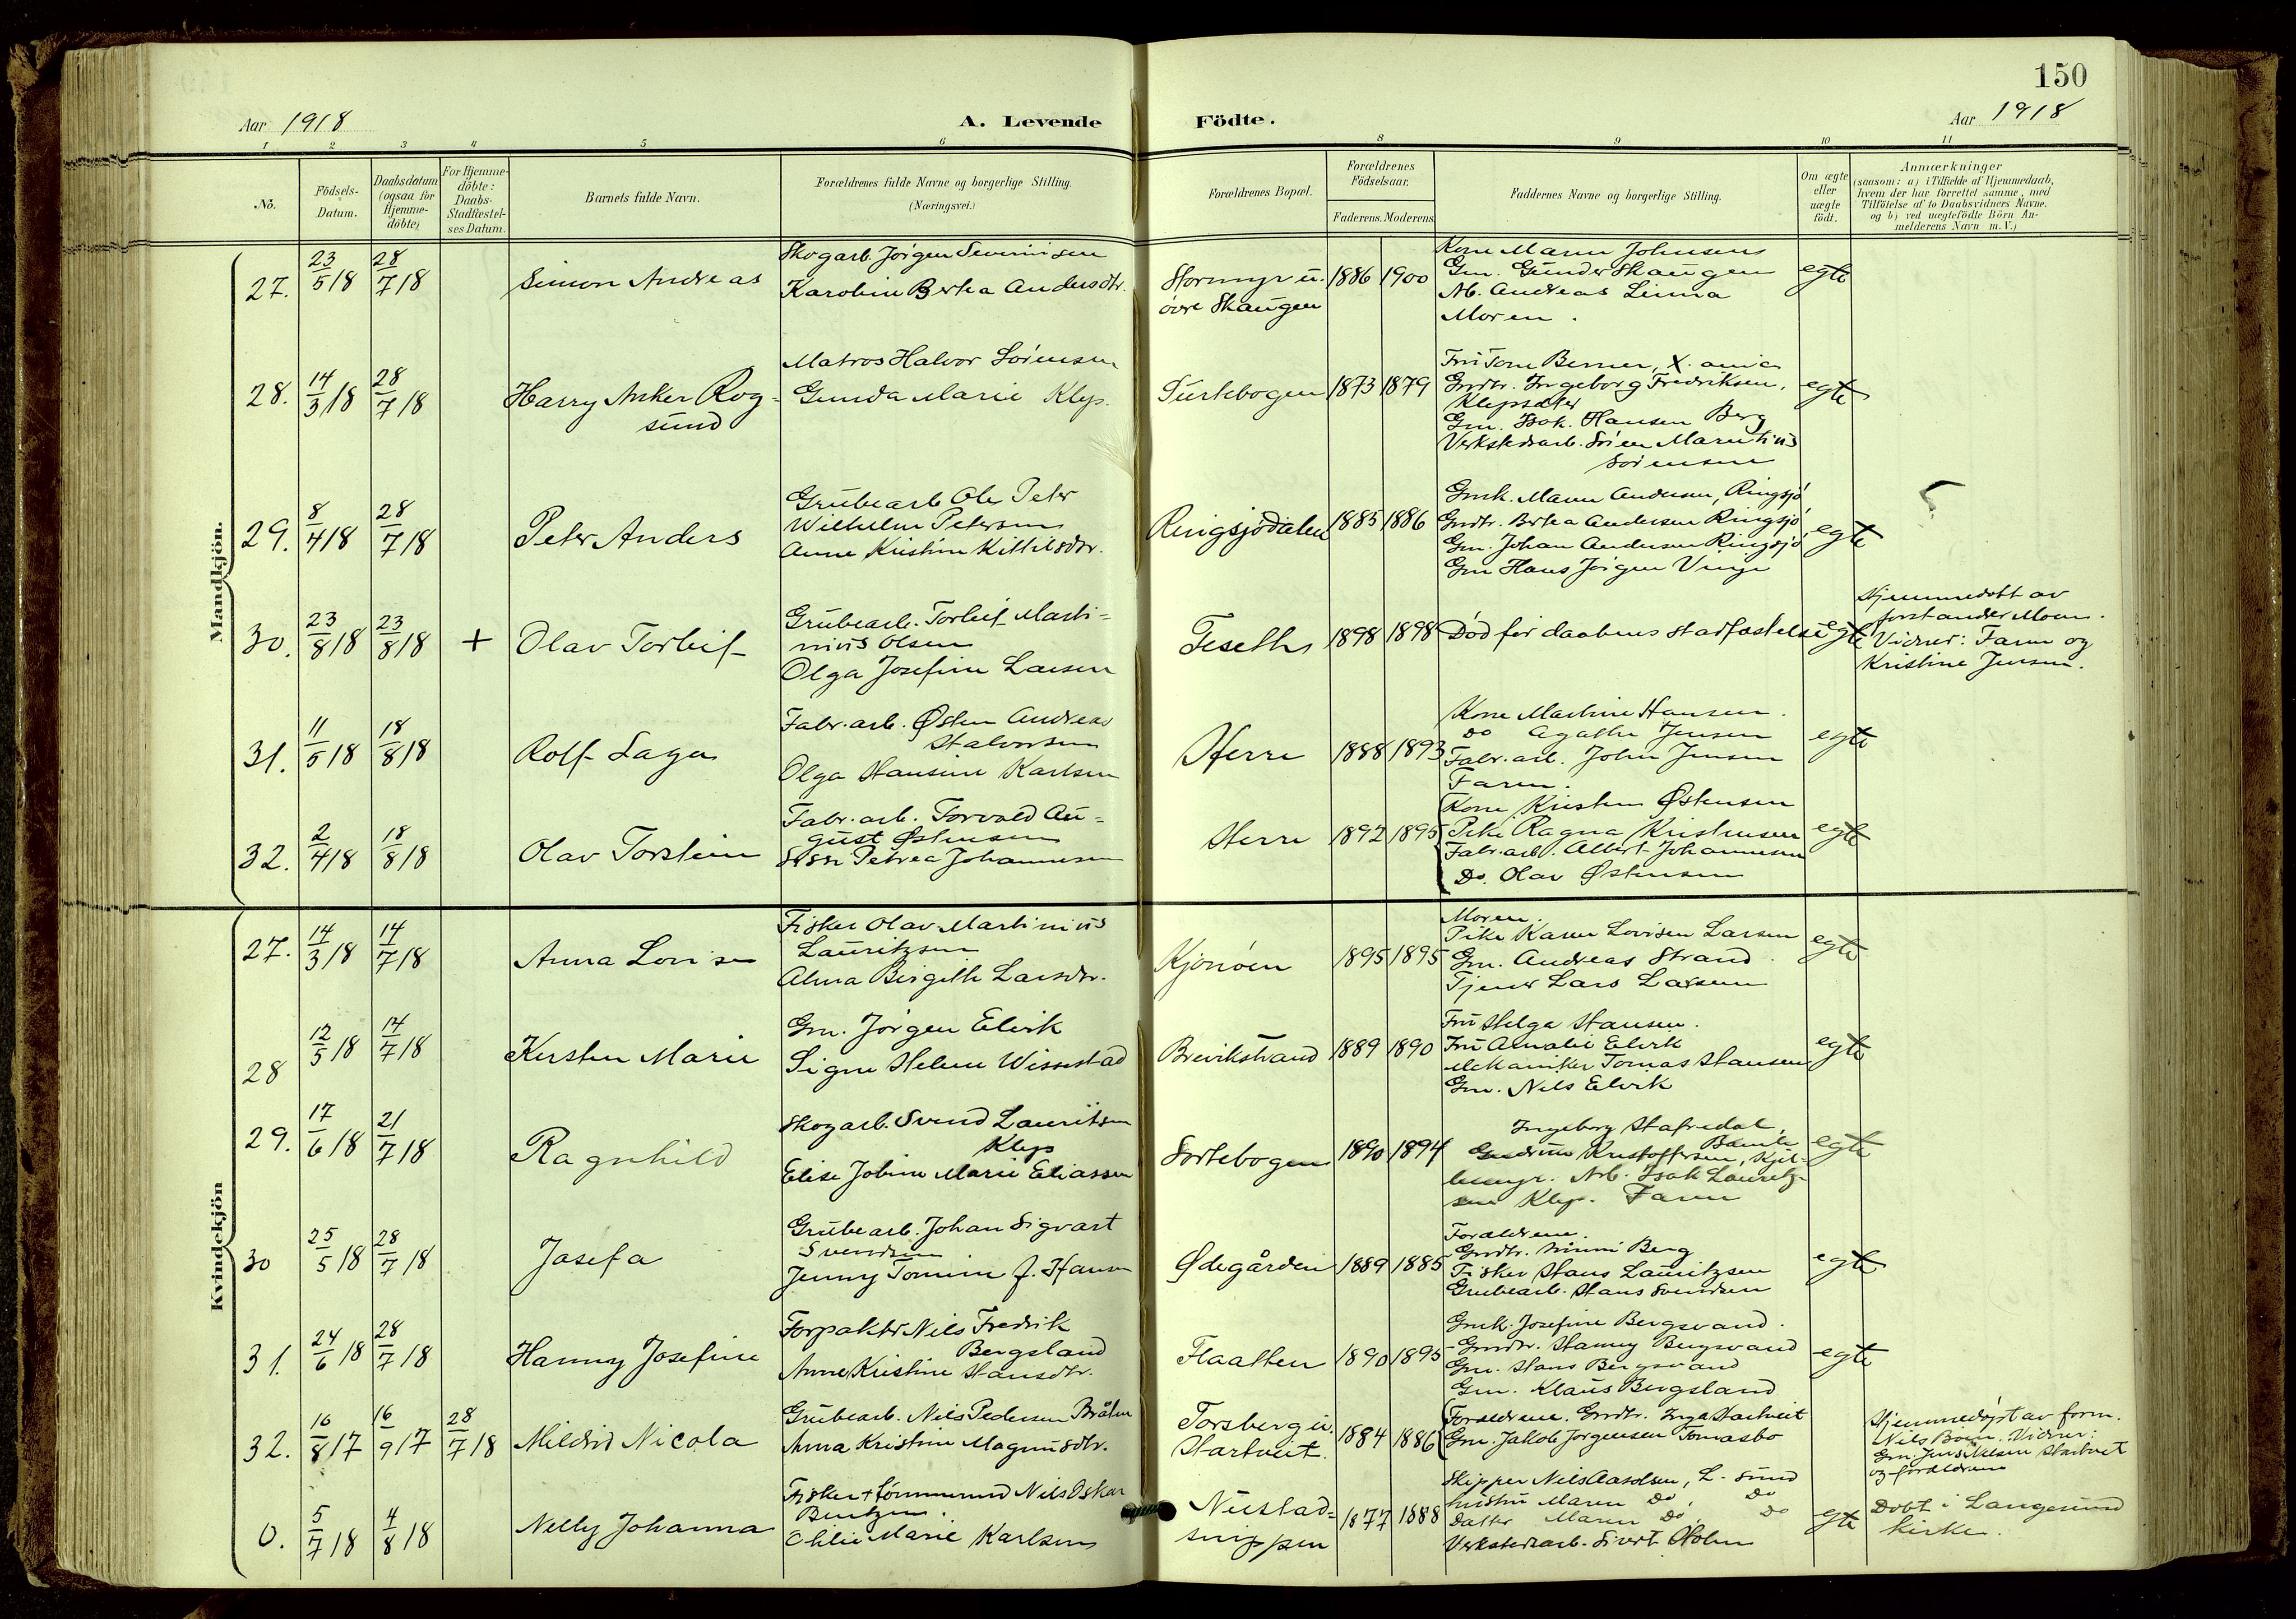 150
Aar 1918
A. Levende Födte.
Aar 1918
1 2 3 4 5 6 8 9 10 11
No.
Födsels-
Datum.
Daabsdatum
(ogsaa for
Hjemme-
döbte)
For Hjemme-
döbte:
Daabs-
Stadfæstel-
ses Datum.
Barnets fulde Navn.
Forældrenes fulde Navne og borgerlige Stilling.
(Næringsvei.)
Forældrenes Bopæl.
Forældrenes
Födselsaar.
Faderens. Moderens.
Faddernes Navne og borgerlige Stilling.
Om ægte
eller
uægte
födt.
Anmærkninger
(saasom: a) i Tilfælde af Hjemmedaab,
hvem der har forrettet samme, med
Tilföielse af to Daabsvidners Navne.
og b) ved uægtefödte Börn An-
melderens Navn m. V.)
Mandkjön.
27. 23/5 18 28/7 18
Simon Andreas
Skogarb. Jörgen Severinsen
Karoline Bertea Andersdtr.
Stormyr u.
övre Skaugen
1886 1900
Kone Maren Johnsens
Gm. Gunder Skaugen
Arb. Andreas Linna
Moren.
egte
28. 14/3 18 28/7 18
Harry Anker Rog-
sund
Matros Halvor Sörensen
Gunda Marie Klep.
Surtebogen
1873 1879
Fru Tone Berner,
Grdtr. Ingeborg Fredriksen,
Klepsæter
Gm. Isak Hansen Berg
Verkstedsarb. Sören Marentius
Sörensen
egte
29. 8/4 18 28/7 18
Peter Anders
Grubearb Ole Peter
Wilhelm Petersen
Anne Kristine Kittilsdtr.
Ringsjödalen
1885 1886
Gmk. Maren Andersen, Ringsjö
Grdtr. Bertea Andersen Ringsjö
Gm. Johan Andersen Ringsjö
Gm Hans Jörgen Vinje
egte
30. 23/8 18 23/8 18 +
Olav Torleif
Grubearb. Torleif Marti-
nius Olsen
Olga Josefine Larsen
Teseth
1898 1898
Död för daabens stadfæstelse
egte
Hjemmedöbt av
forstander Moen.
Vidner: Faren og
Kristine Jensen.
31. 11/5 18 18/8 18
Rolf Lage
Fabr. arb. Østen Andreas
Halvorsen
Olga Hansine Karlsen
Herre
1888 1893
Kone Martine Hansen.
Do Agathe Jensen
Fabr. arb. John Jensen
Faren.
egte
32. 2/4 18 18/8 18
Olav Torstein
Fabr. arb. Torvald Au-
gust Østensen
Petrea Johannesen
Herre
1892 1895
Kone Kristen Østensen
Pike Ragna Kristensen
Fabr. arb. Albert Johannesen
Do. Olav Østensen
egte
Kvindekjön
27. 14/3 18 14/7 18
Anna Lovise
Fisker Olav Martinius
Lauritzsen
Alma Birgitte Larsdtr.
Kjönöen
1895 1895
Moren.
Pike Karen Lovisen Larsen
Gm. Andreas Strand
Tjener Lars Larsen
egte
28 12/5 18 14/7 18
Kirsten Marie
Gm. Jörgen Elvik
Signe Helene Wissestad
Brevikstrand
1889 1890
Fru Helga Hansen.
Fru Amalie Elvik
Mekaniker Tomas Hansen
Gm. Nils Elvik
egte
29. 17/6 18 21/7 18
Ragnhild
Skogarb. Svend Lauritsen
Klep
Elise Jobine Marie Eliassen
Sortebogen
1890 1894
Ingeborg Hafredal,
Bamle
Gudrun Kristoffersen, Kjil-
lemyr. Arb. Isak Lauritz-
sen Klep. Faren
egte
30 25/5 18 28/7 18
Josefa
Grubearb. Johan Sigvart
Svendsen
Jenny Tomine f. Hansen
Ødegården
1889 1885
Forældrene.
Grdtr. Minni Berg
Fisker Hans Lauritzsen
Grubearb. Hans Svendsen
egte
31. 24/6 18 28/7 18
Hanny Josefine
Forpakter Nils Fredrik
Bergsland
Anne Kristine Hansdtr.
Flaatten
1890 1895
Gmk. Josefine Bergsvand.
Grdtr. Hanny Bergsvand
Gm. Hans Bergsvand
Gm. Klaus Bergsland
egte
32. 16/8 17 16/9 17 28/7 18
Mildrid Nicola
Grubearb. Nils Pedersen Bråten
Anna Kristine Magnusdtr.
Torsberg u.
Hartveit.
1884 1886
Forældrene. Grdtr. Inga Hartveit
Gm. Jakob Jörgensen Tomasbo
Hjemmedöpt av form.
Nils Boien. Vidner:
Gm. Jens Nilsen Hartveit
og forældrene
0. 5/7 18 4/8 18
Nelly Johanna
Fisker + tömmermd Nils Oskar
Bentzen.
Othilie Marie Karlsen
Nustad-
snippen
1877 1888
Skipper Nils Aasolsen, L. sund
hustru Maren Do, Do
Datter Maren Do, Do
Verkstedsarb. Sivert Holm
egte
Döbt i Langesund
kirke.